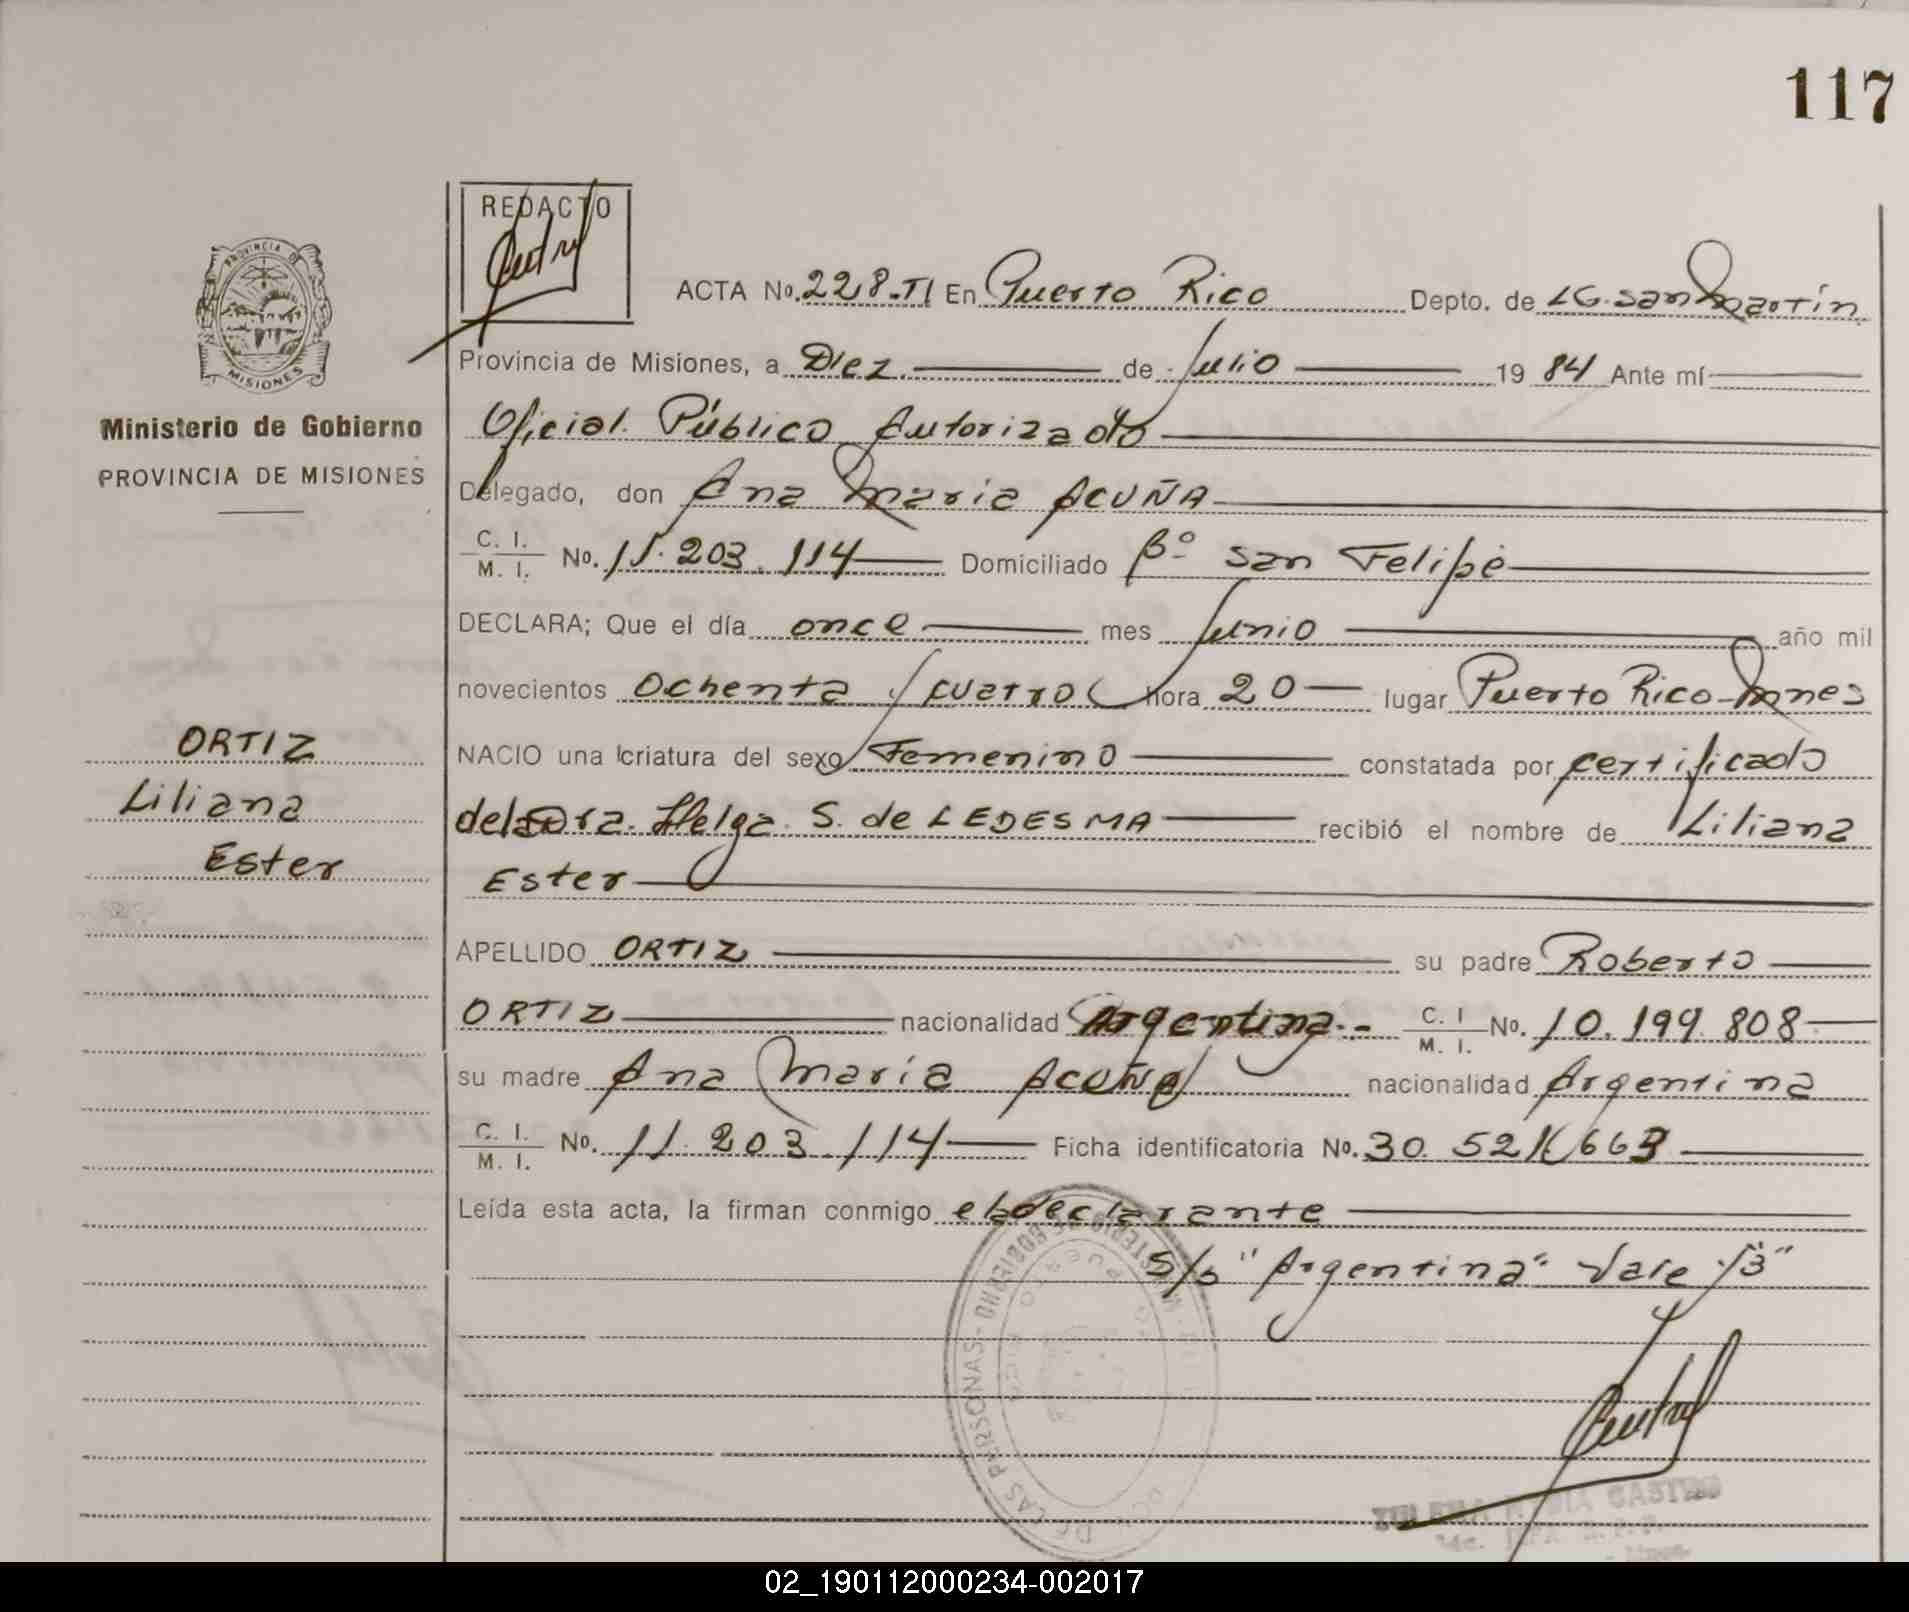 117
REDACTO
PROVINCIA DE
MISIONES
Ministerio de Gobierno
PROVINCIA DE MISIONES
ORTIZ
Liliana
Ester
ACTA No. 228-TI En Puerto Rico Depto. de LG. San Martín
Provincia de Misiones, a Diez de Julio 1984 Ante mí
Oficial Público Autorizado
Delegado, don Ana Maria ACUÑA
C. I. M. I. No. 11.203.114 Domiciliado Bº San Felipe
DECLARA; Que el día once mes Junio año mil
novecientos Ochenta y cuatro hora 20 lugar Puerto Rico-Mnes
NACIO una criatura del sexo Femenino constatada por certificado
de la Dra. Helga S. de LEDESMA recibió el nombre de Liliana
Ester
APELLIDO ORTIZ su padre Roberto
ORTIZ nacionalidad Argentina.- C. I M. I. No. 10.199.808
su madre Ana Maria Acuña nacionalidad Argentina
C. I. M. I. No. 11.203.114 Ficha identificatoria No. 30.521.663
Leída esta acta, la firman conmigo el declarante
S/b "Argentina" Vale y "3"
DE LAS PERSONAS - MINISTERIO DE GOBIERNO
PUERTO RICO
CASTRO
02_190112000234-002017